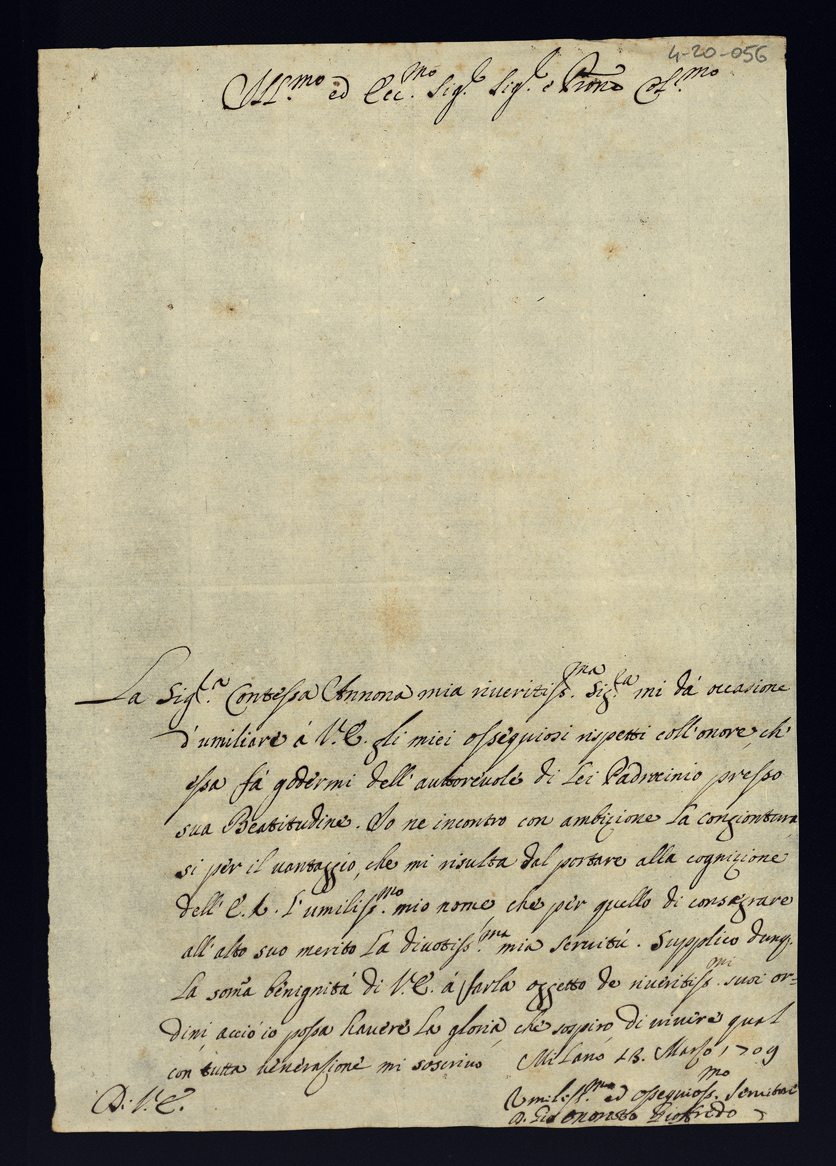 4-20-056
Ill.mo ed Ecc.mo Sig.r Sig.r e Prone Col.mo
La Sig.ra Contessa Annona mia riveritiss.ma Sig.ra mi dá occasione
d'umiliare á V.E. gli miei ossequiosi rispetti coll'onore, ch'
essa fá godermi dell'autorevole di Lei Padrocinio presso
sua Beatitudine. Io ne incontro con ambizione la congiontura
si per il vantaggio, che mi risulta dal portare alla cognizione
dell'E.V. l'umiliss.mo mio nome che per quello di consagrare
all'alto suo merito la divotiss.ma mia servitú. Supplico dunq.
la som̃a benignitá di V.E. á farla oggetto de riveritiss.mi suoi or=
dini, acció io possa havere la gloria, che sospiro di vivere qual
con tutta venerazione mi soscrivo Milano 13. Marzo 1709
Di V.E.
Umiliss.mo ed ossequioss.mo Servitore
Onorato